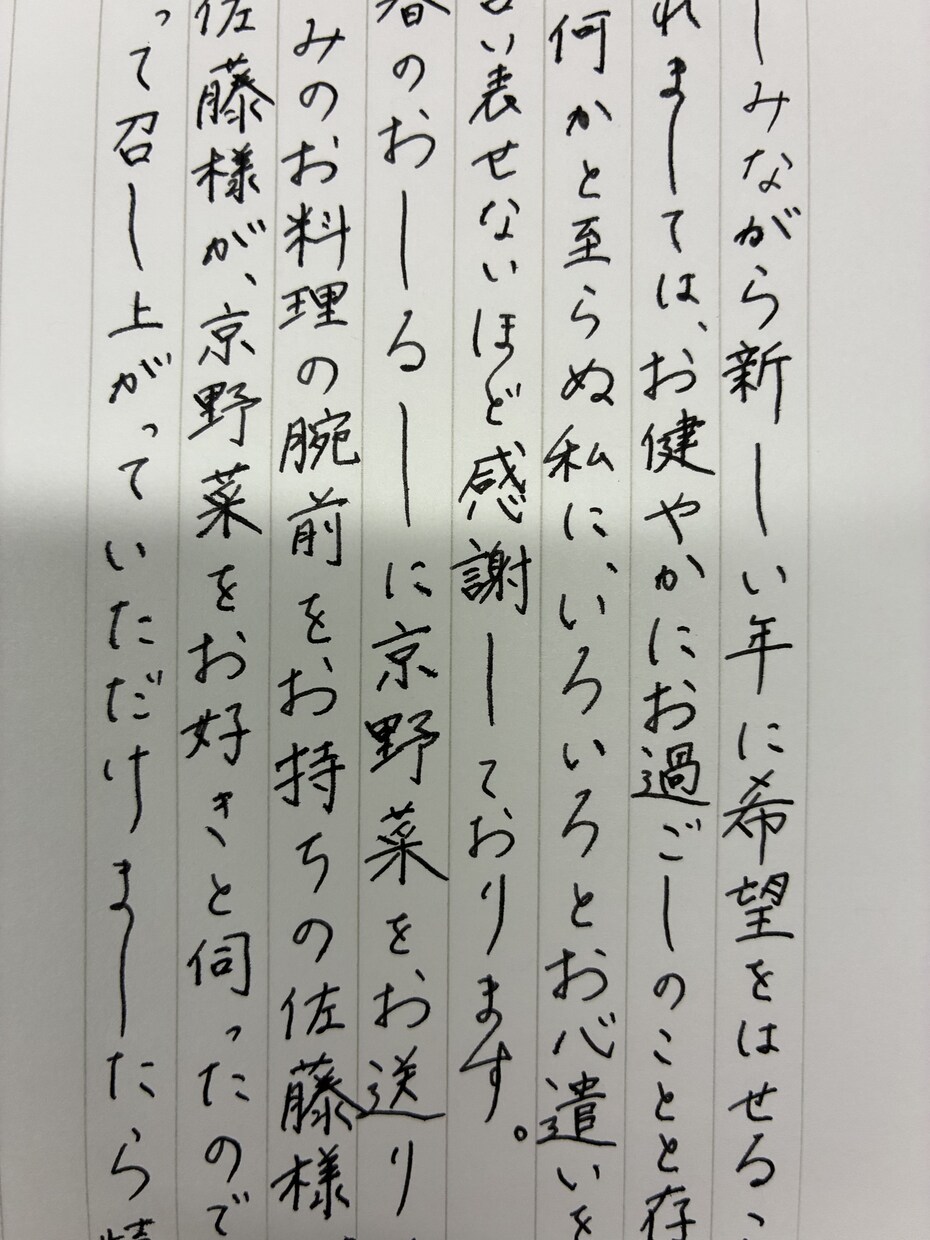 しみながら新しい年に希望をはせるこ
れましては、お健やかにお過ごしのことと存
何かと至らぬ私に、いろいろとお心遣いを
い表せないほど感謝しております。
春のおしるしに京野菜を、お送り
みのお料理の腕前をお持ちの佐藤様
佐藤様が、京野菜をお好きと伺ったので
って召し上がっていただけましたら